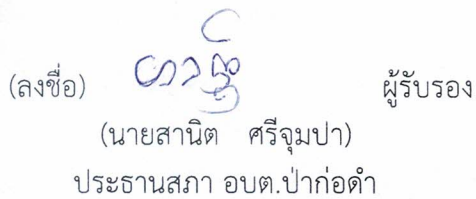 (ลงชื่อ) ผู้รับรอง
(นายสานิต ศรีจุมปา)
ประธานสภา อบต.ป่าก่อดำ